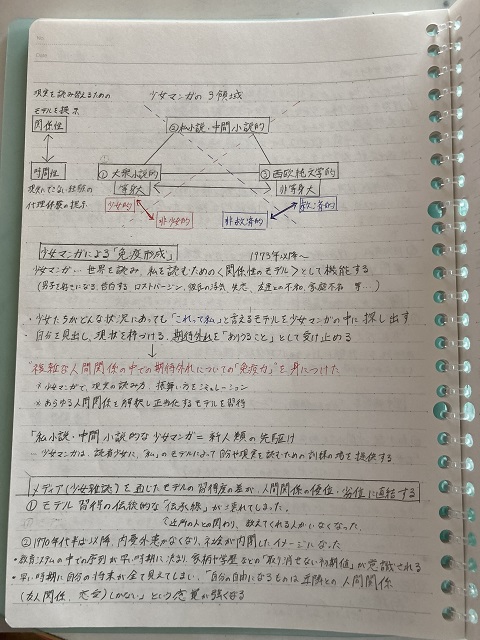 No.
Date
現実を読み替えるための
モデルを提示
少女マンガの3領域
関係性
②私小説・中間小説的
時間性
①大衆小説的
③西欧純文学的
現実にはない経験の
代理体験の提示
等身大
非等身大
少女的
救済的
非少女的
非救済的
少女マンガによる「免疫形成」
1973年以降〜
少女マンガ… 世界を読み、私を読むための〈関係性のモデル〉として機能する
(男子を好きになる、告白する、ロストバージン、彼氏の浮気、失恋、友達との不和、家庭不和 等…)
・少女たちがどんな状況にあっても「これって私」と言えるモデルを少女マンガの中に探し出す
・自分を見出し、現状を枠づける、期待外れを「ありうること」として受け止める
"複雑な人間関係の中での期待外れについての"免疫力"を身につけた
※少女マンガで、現実の読み方、振舞い方をシミュレーション
※あらゆる人間関係を解釈し正当化するモデルを習得
「私小説・中間小説的な少女マンガ=新人類の先駆け
少女マンガは、読者少女に、「私」のモデルによって自分や現実を読むための訓練の場を提供する
メディア(少女雑誌)を通じたモデルの習得度の差が、人間関係の優位・劣位に直結する
①モデル習得の伝統的な「伝承線」が潰れてしまった。
近所の人との関わり、教えてくれる人がいなくなった
②1970年代半ば以降、内憂外患がなくなり、社会が内閉したイメージになった
・教育システムの中での序列が早い時期に決まり、家柄や学歴などの「取り消せない初期値」が意識される
・早い時期に自分の将来が全て見えてしまい、「自分の自由になるものは差障との人間関係
(友人関係、恋愛)しかない」という感覚が強くなる